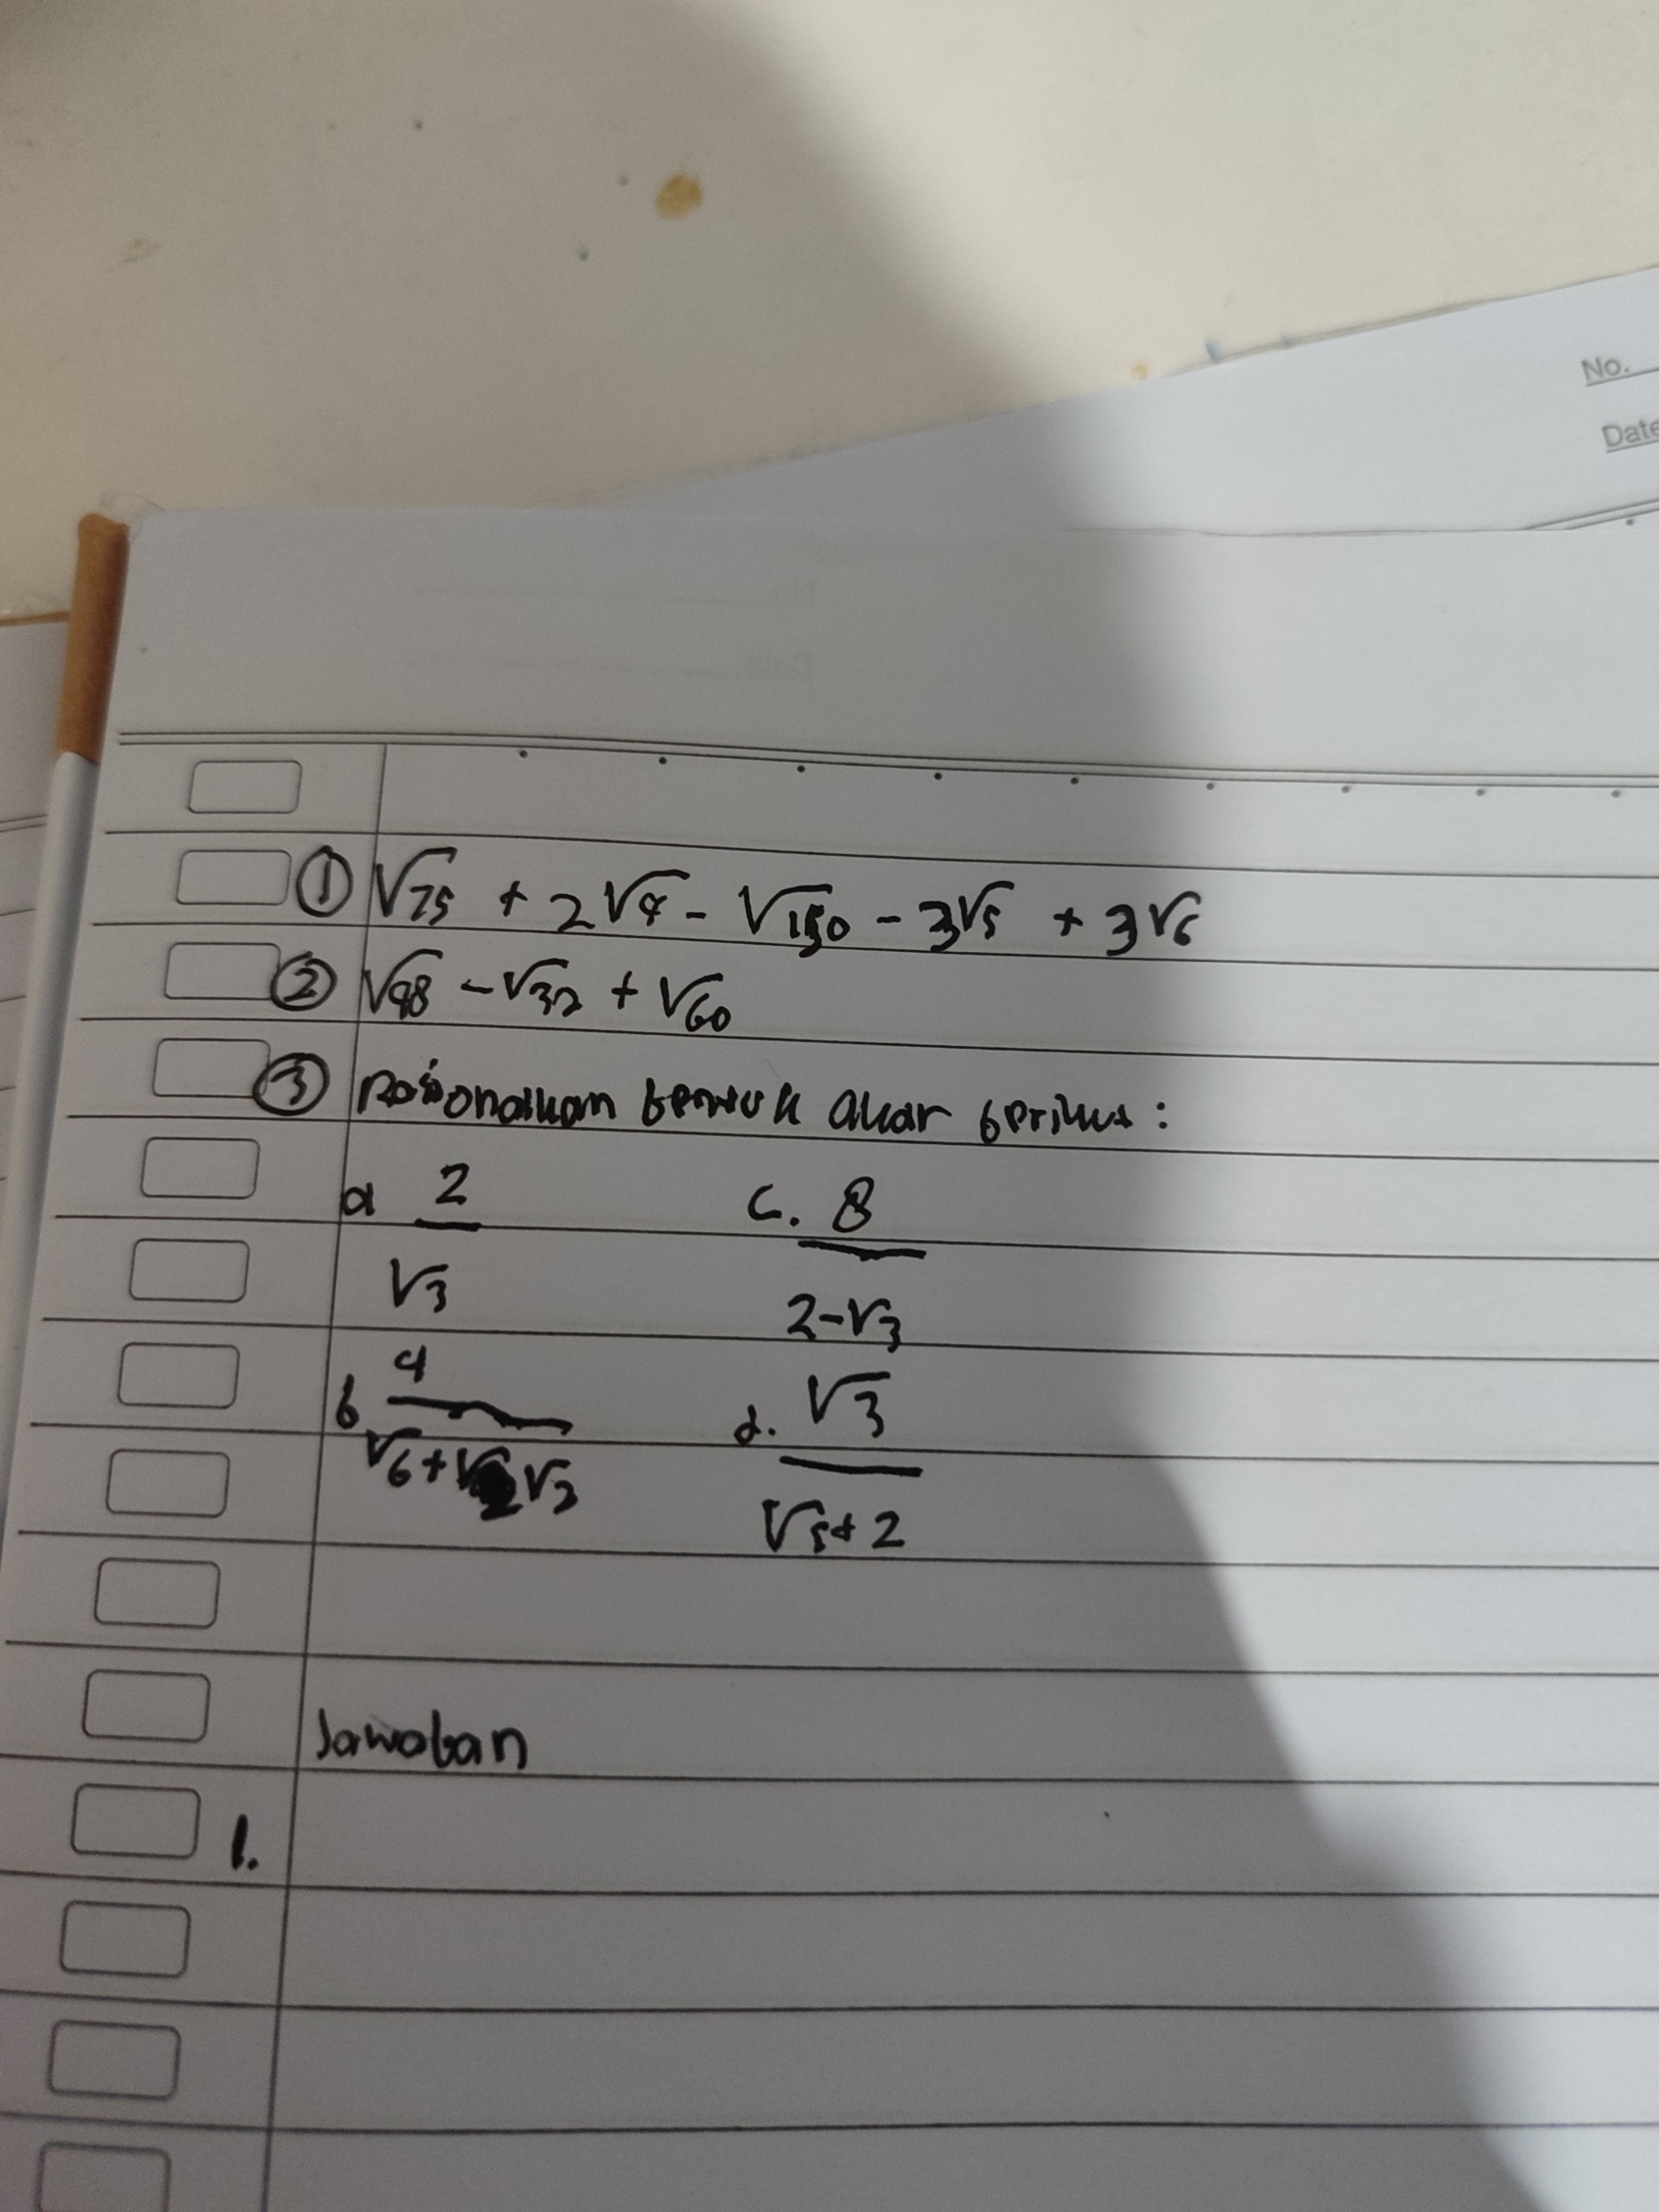 No.
Date
① √75 + 2√8 - √150 - 3√5 + 3√6
② √98 - √32 + √60
③ Rasionalkan bentuk akar berikut :
a 2/√3 c. 8/2-√3
b 4/√6+√3 d. √3/√5+2
Jawaban
1.